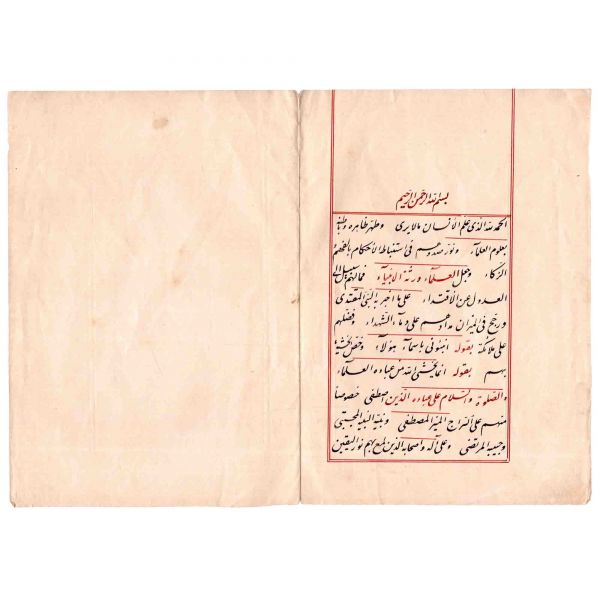 بسم الله الرحمن الرحيم
الحمد لله الذى علم الانسان مالايدرى وطهر ظاهره وباطنه
بعلوم العلمآء ونور صدورهم فى استنباط الاحكام
الزكاء وجعل العلمآء ورثة الانبيآء فمالهم سبيل الى
العدول عن الاقتداء على ما اخبر به النبى المقتدى
ورجح فى الميزان مدادهم على دمآء الشهداء وفضلهم
على ملائكته بقوله انبئونى باسمآء هؤلآء وخص الخشية
بهم بقوله انما يخشى الله من عباده العلمآء
والصلوة والسلام على عباده الذين اصطفى خصوصاً
منهم على السراج المنير المصطفى ونبيه النبيه المجتبى
وحبيبه المرتضى وعلى آله واصحابه الذين لمع بهم نور اليقين